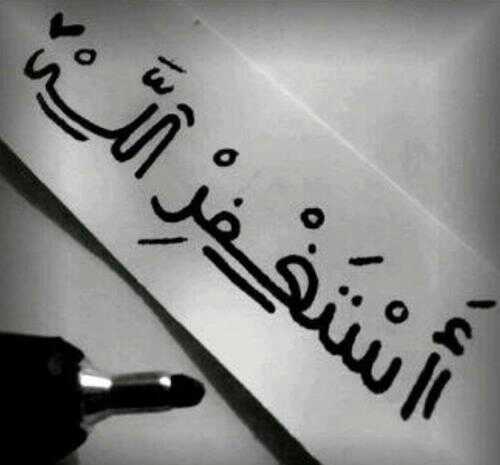 أَسْتَغْفِرْ اللَّهْ